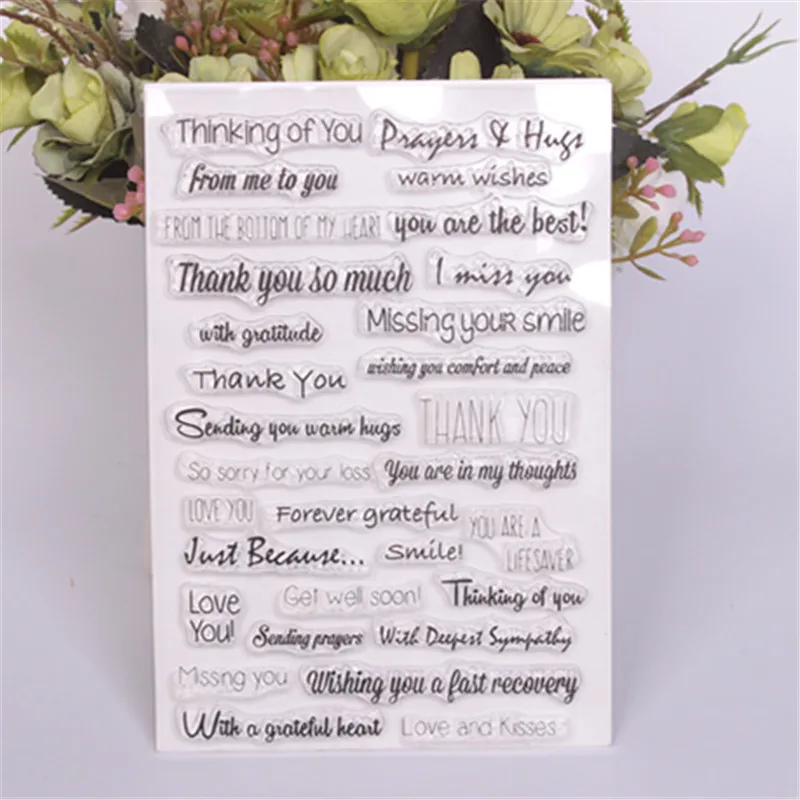 Thinking of You Prayers & Hugs
from me to you warm wishes
FROM THE BOTTOM OF MY HEART you are the best!
Thank you so much I miss you
with gratitude Missing your smile
Thank You wishing you comfort and peace
Sending you warm hugs THANK YOU
So sorry for your loss You are in my thoughts
LOVE YOU Forever grateful YOU ARE A
LIFESAVER
Just Because... Smile!
Love
You!
Get well soon! Thinking of you
Sending prayers With Deepest Sympathy
Missing you Wishing you a fast recovery
With a grateful heart Love and Kisses